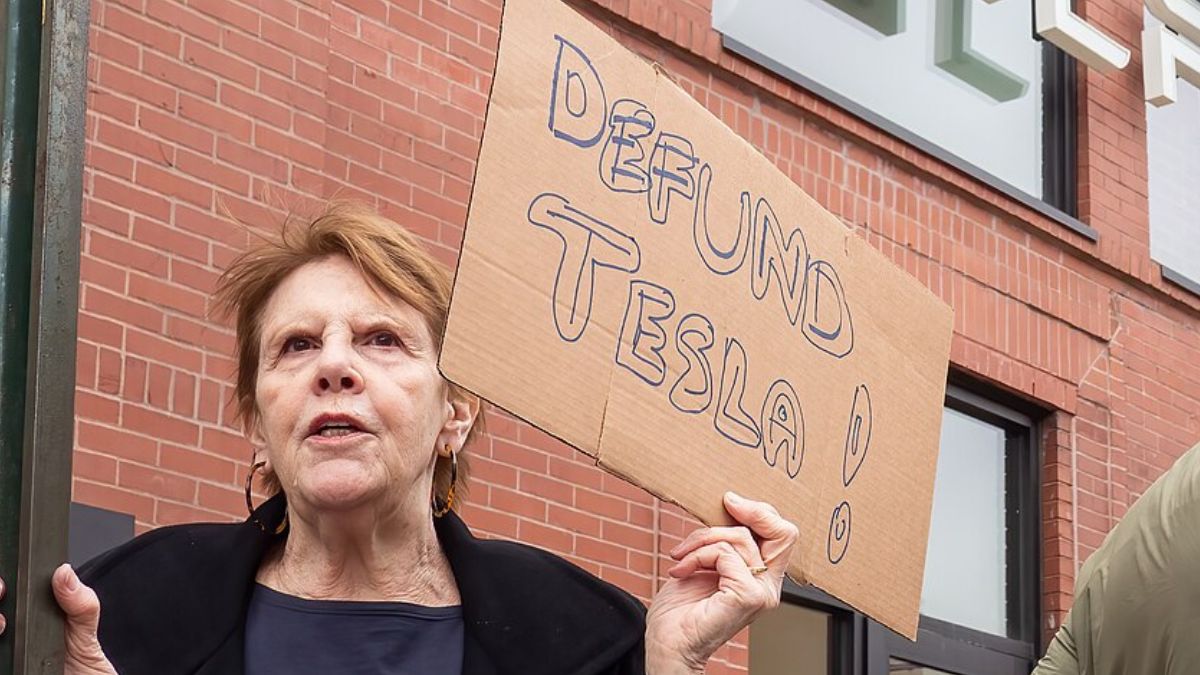 DEFUND
TESLA!